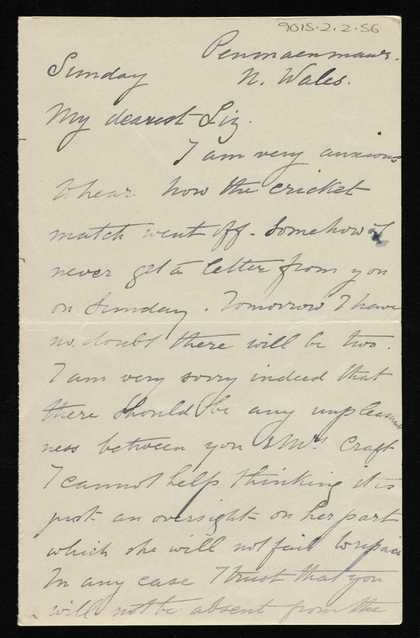 9015-2-2-56
Penmaenmawr.
Sunday N. Wales.
My dearest Liz.
I am very anxious
to hear how the cricket
match went off. Somehow I
never get a letter from you
on Sunday. Tomorrow I have
no doubt there will be two.
I am very sorry indeed that
there should be any unpleasant
ness between you & Mrs Craft
I cannot help thinking it is
just an oversight on her part
which she will not fail to repair
In any case I trust that you
will not be absent from the